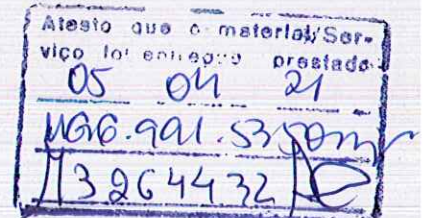 Atesto que o material/Ser-
viço foi entregue prestado
05 04 21
13264432